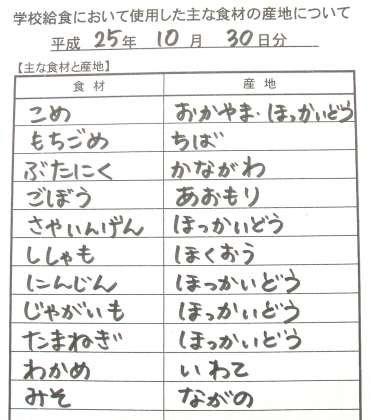 学校給食において使用した主な食材の産地について
平成 25年 10月 30日分
【主な食材と産地】
食材 産地
こめ おかやま・ほっかいどう
もちごめ ちば
ぶたにく かながわ
ごぼう あおもり
さやいんげん ほっかいどう
ししゃも ほくおう
にんじん ほっかいどう
じゃがいも ほっかいどう
たまねぎ ほっかいどう
わかめ いわて
みそ ながの